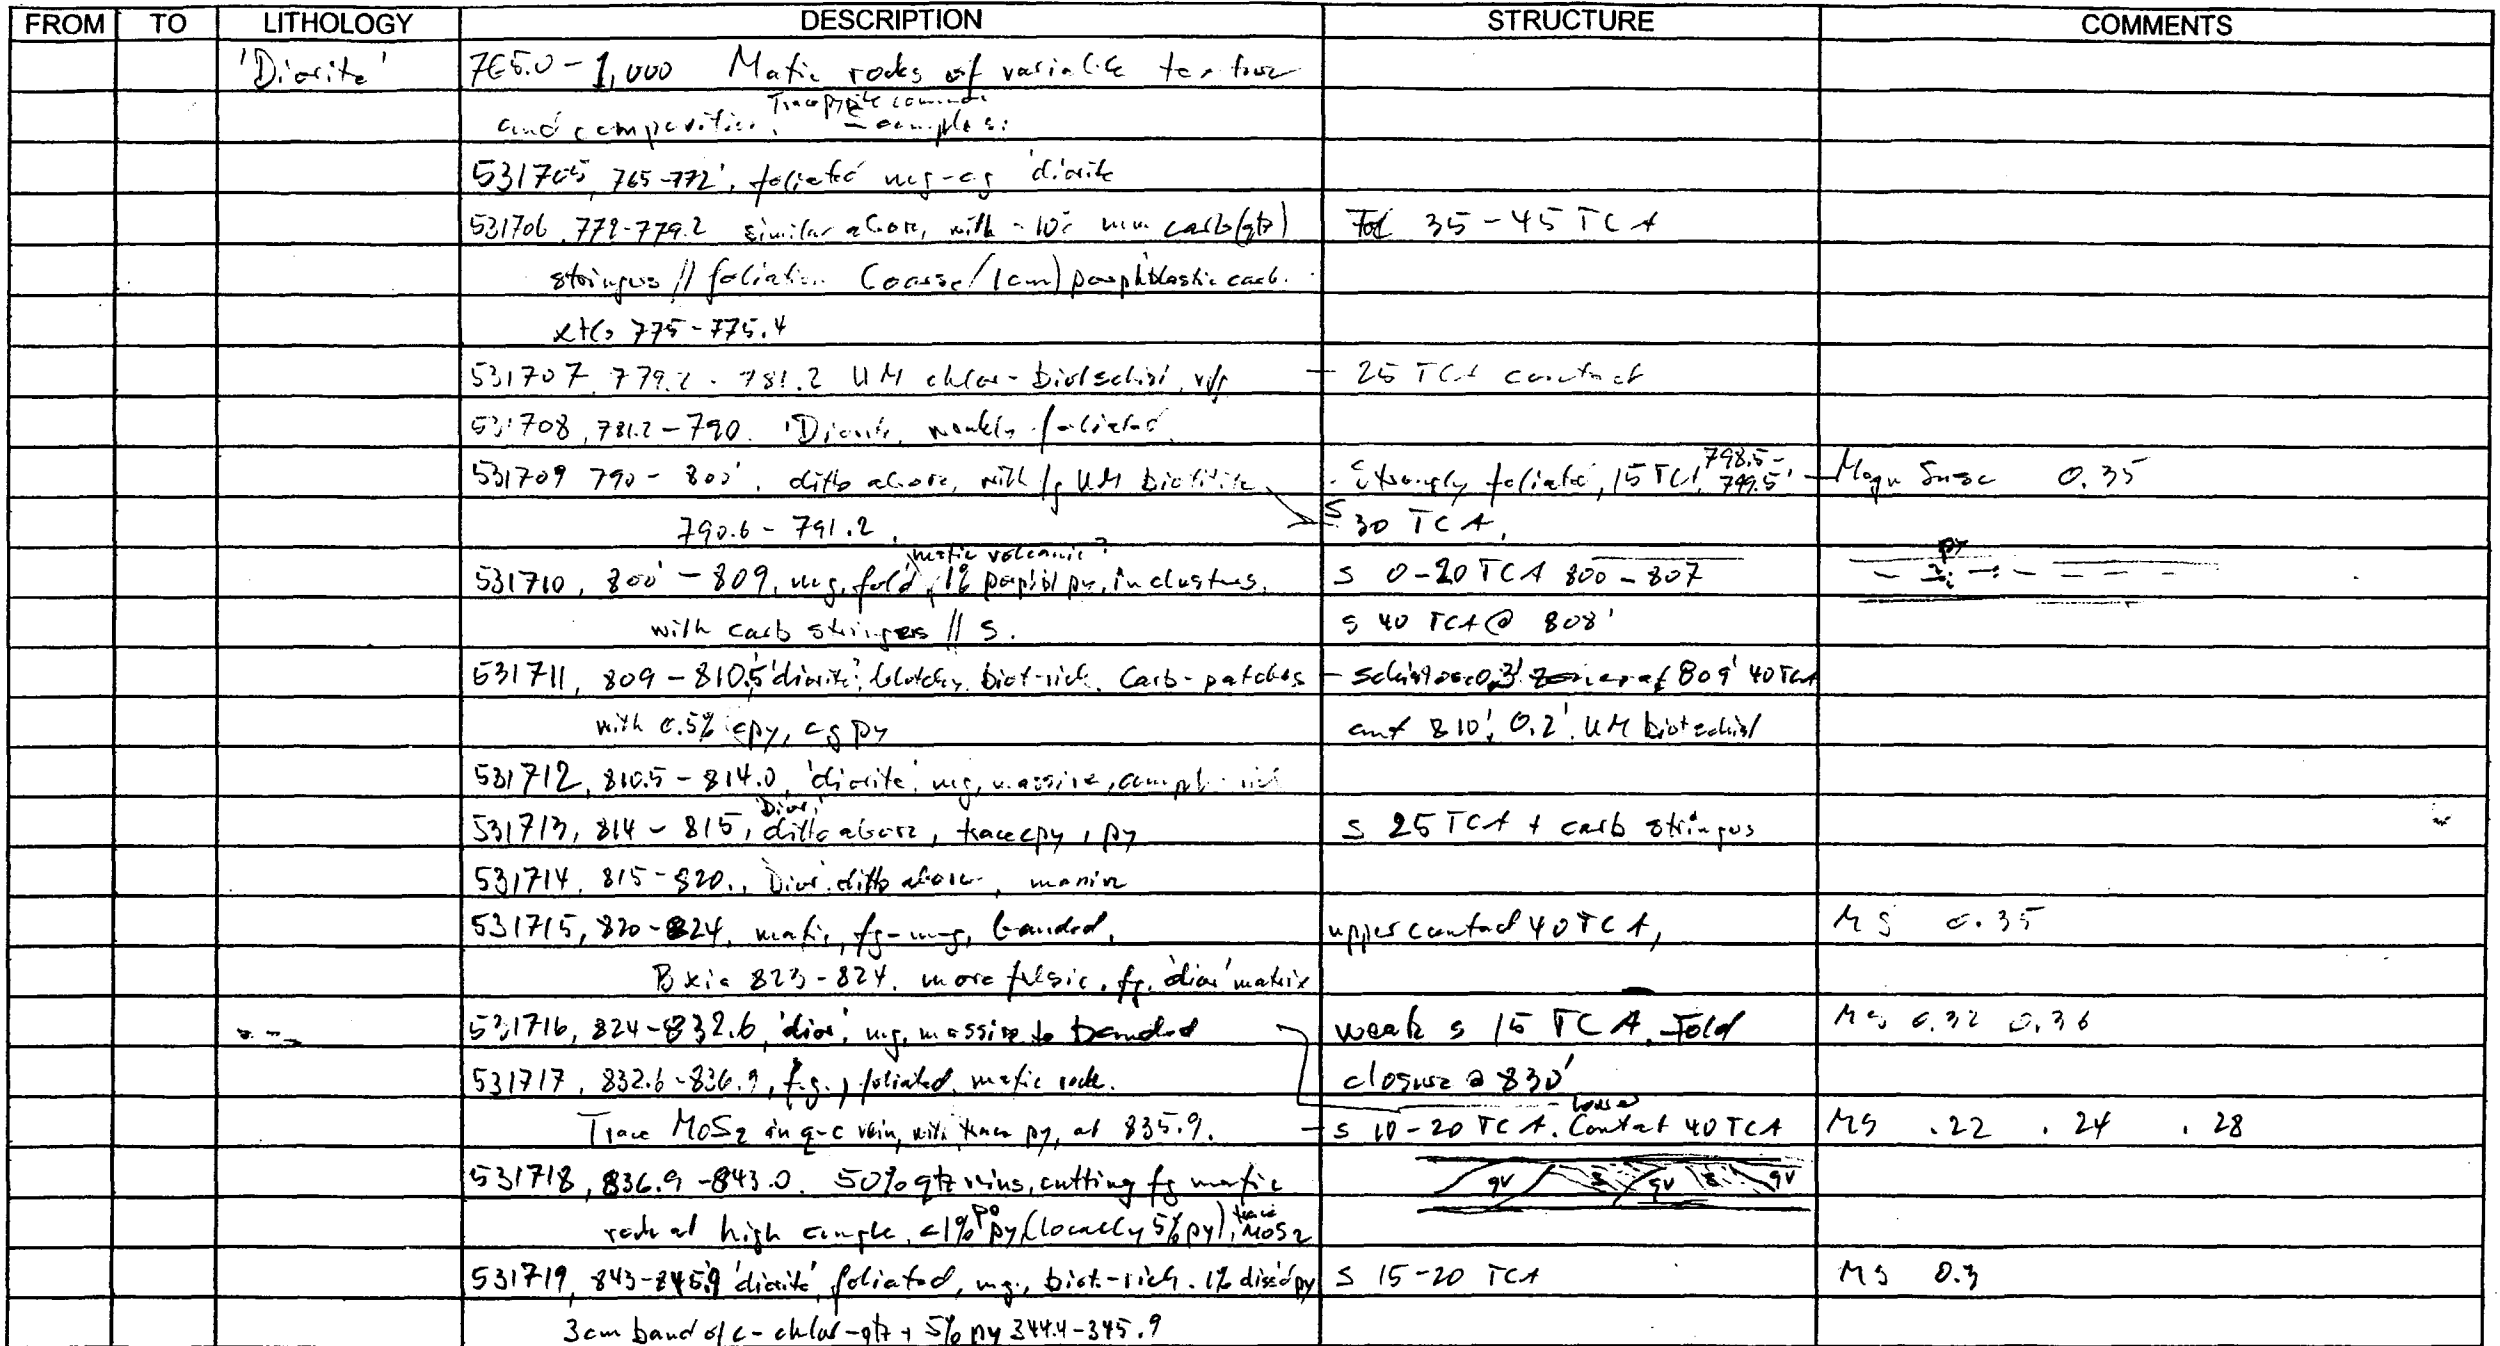 FROM TO LITHOLOGY DESCRIPTION STRUCTURE COMMENTS
'Diorite' 765.0 - 1,000 Mafic rocks of variable texture
and composition. Trace pyrite common
531705, 765-772', foliated mg-cg 'diorite
531706, 772-779.2 similar above, with mm carb (qtz) Fol 35-45 TCA
stringers // foliation Coarse (1cm) porphblastic carb.
xtls 775-775.4
531707, 779.2 - 781.2 UM chlor-biot schist, vfg - 25 TCA contact
531708, 781.2-790. 'Diorite, weakly foliated.
531709 790 - 800', ditto above, with fg UM biotitite - strongly foliated, 15 TCA, 798.5-799.5' - Magn Susc 0.35
790.6 - 791.2, S 30 TCA,
531710, 800' - 809, mg, fol'd, mafic volcanic? 1% porphbl py, in clusters, s 0-20 TCA 800-807 py
with carb stringers // s. s 40 TCA @ 808'
531711, 809 - 810.5 'diorite', blotchy, biot-rich. Carb-patches - schistose 0.3' zone at 809' 40 TCA
with 0.5% cpy, cg py and 810', 0.2' UM biot schist
531712, 810.5 - 814.0, 'diorite', mg, massive, amph-rich
531713, 814 - 815, 'Dior.' ditto above, trace cpy, py s 25 TCA + carb stringers
531714, 815-820., Dior. ditto above, massive
531715, 820-824, mafic, fg-mg, banded, upper contact 40 TCA, MS 0.35
Bxia 823-824, more felsic, fg. 'dior' matrix
531716, 824-832.6, 'dior', mg, massive to banded weak s 15 TCA. Fold MS 0.32 0.36
531717, 832.6-836.9, f.g., foliated, mafic rock. closure @ 830'
Trace MoS2 in q-c vein, with trace py, at 835.9. - s 10-20 TCA. Lower Contact 40 TCA MS .22 .24 .28
531718, 836.9-843.0. 50% qtz veins, cutting fg mafic qv s qv s qv
rock at high angle, <1% po py (locally 5% py), trace MoS2
531719, 843-845.9 'diorite', foliated, mg, biot.-rich. 1% diss'd py s 15-20 TCA MS 0.3
3cm band of c-chlor-qtz + 5% py 344.4-345.9